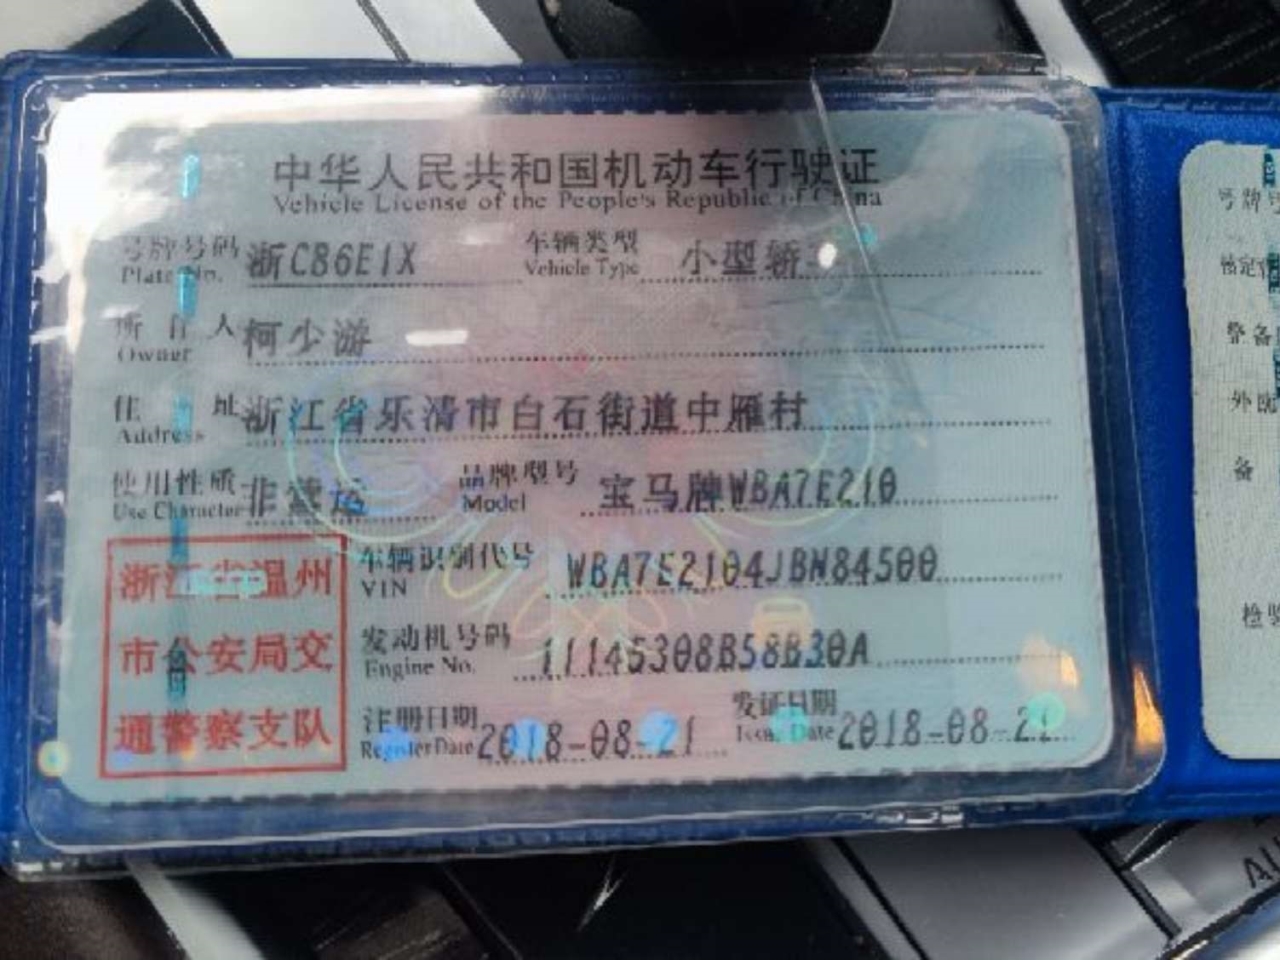 中华人民共和国机动车行驶证
Vehicle License of the People's Republic of China
号牌号码 浙CB6E1X 车辆类型 小型轿车
Plate No. Vehicle Type
所有人 柯少游
Owner
住址 浙江省乐清市白石街道中雁村
Address
使用性质 非营运 品牌型号 宝马牌WBA7E210
Use Character Model
浙江省温州
市公安局交
通警察支队
车辆识别代号 WBA7E2104JBN84500
VIN
发动机号码 11145308B58B30A
Engine No.
注册日期 2018-08-21 发证日期 2018-08-21
Register Date Issue Date
号牌号
核定
整备
外
备
检验